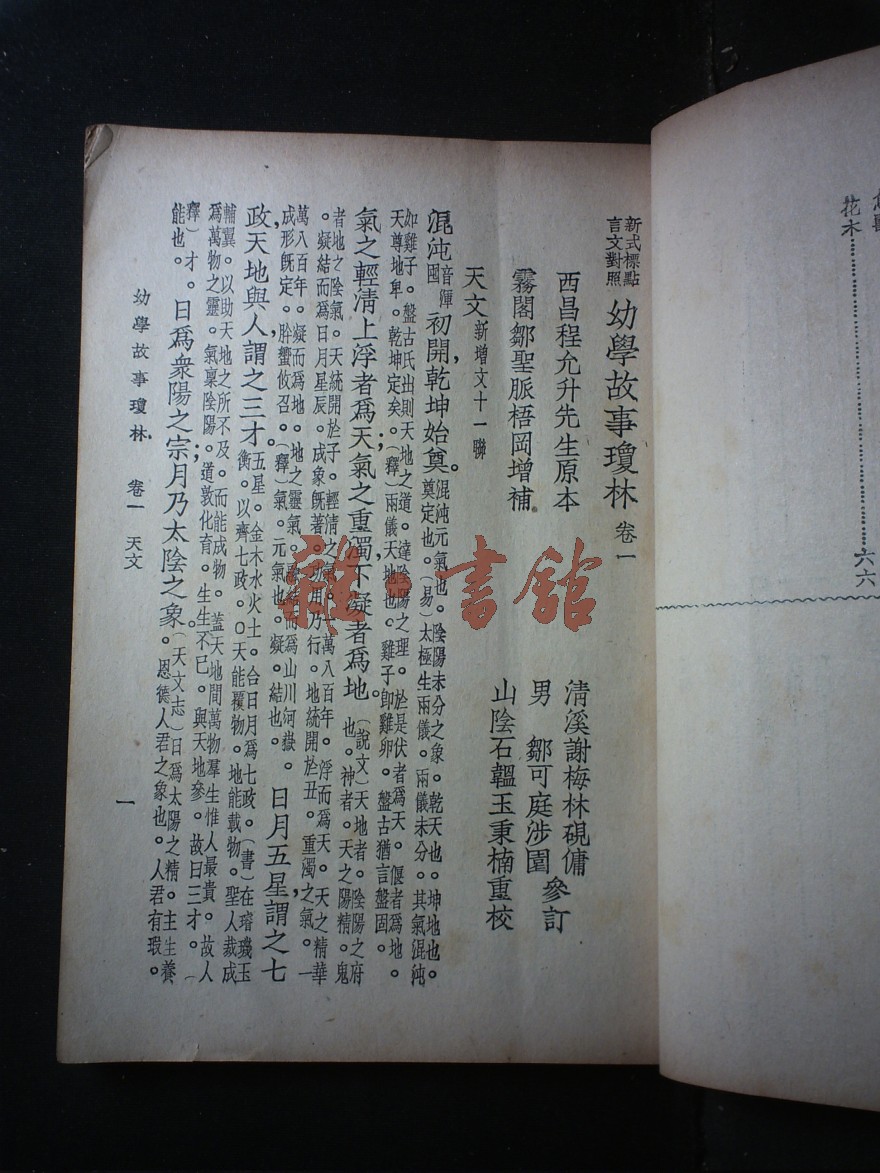 花木……………………………六六
新式標點
言文對照
幼學故事瓊林 卷一
西昌程允升先生原本
清溪謝梅林硯傭
霧閣鄒聖脈梧岡增補
男 鄒可庭涉園
參訂
山陰石韞玉秉楠重校
天文 新增文十一聯
混沌音渾國初開,乾坤始奠。混沌元氣也。陰陽未分之象。乾天也。坤地也。
奠定也。(易)太極生兩儀。兩儀未分。其氣混沌
如雞子。盤古氏出則天地之道。達陰陽之理。於是伏者爲天。偃者爲地。
天尊地卑。乾坤定矣。(釋)兩儀天地也。雞子即雞卵。盤古猶言盤固。
氣之輕清上浮者爲天;氣之重濁下凝者爲地。(說文)天地者。陰陽之府
也。神者。天之陽精。鬼
者地之陰氣。天統開於子。輕清之氣。一萬八百年。浮而爲天。天之精華
。凝結而爲日月星辰。成象旣著。功用乃行。地統開於丑。重濁之氣。一
萬八百年。凝而爲地。地之靈氣。融結而爲山川河嶽。
成形旣定。肸蠁攸召。(釋)氣。元氣也。凝。結也。
日月五星,謂之七
政,天地與人,謂之三才。五星。金木水火土。合日月爲七政。(書)在璿璣玉
衡。以齊七政。〇天能覆物。地能載物。聖人裁成
輔翼。以助天地之所不及。而能成物。蓋天地間萬物羣生惟人最貴。故人
爲萬物之靈。氣稟陰陽。道敦化育。生生不已。與天地參。故曰三才。(
釋)才。
能也。
日爲衆陽之宗;月乃太陰之象。(天文志)日爲太陽之精。主生養
恩德人君之象也。人君有瑕。
幼學故事瓊林 卷一 天文
一
雜·書館